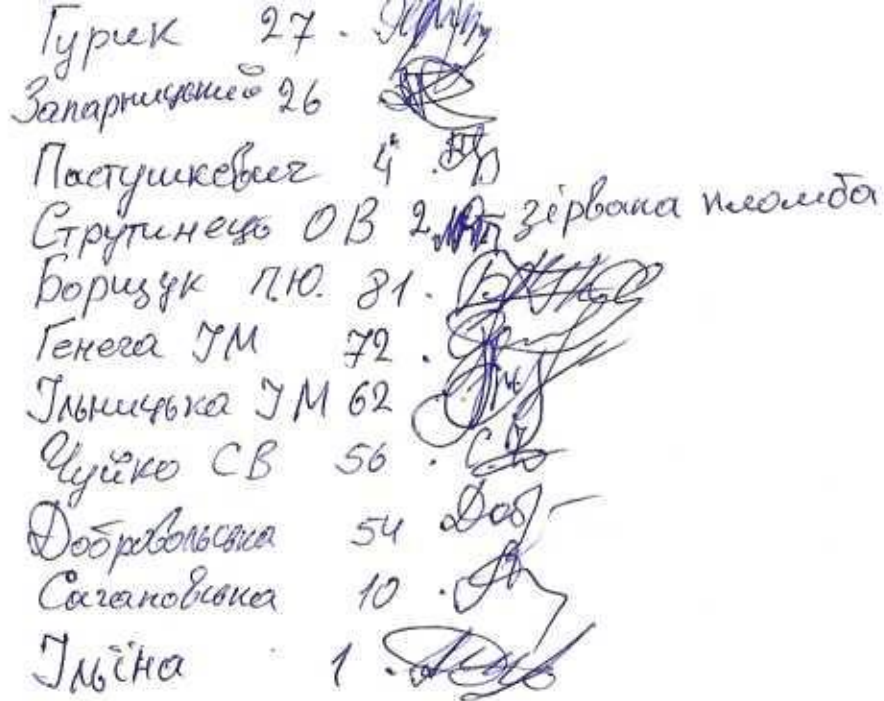 Гурик 27.
Запарницький 26
Пастушкевич 4.
Струтинець О В 2. зірвана пломба
Борщук П.Ю. 81.
Генега ІМ 72.
Ільницька І М 62
Чуйко СВ 56.
Добровольська 54
Сагановська 10.
Ільїна 1.